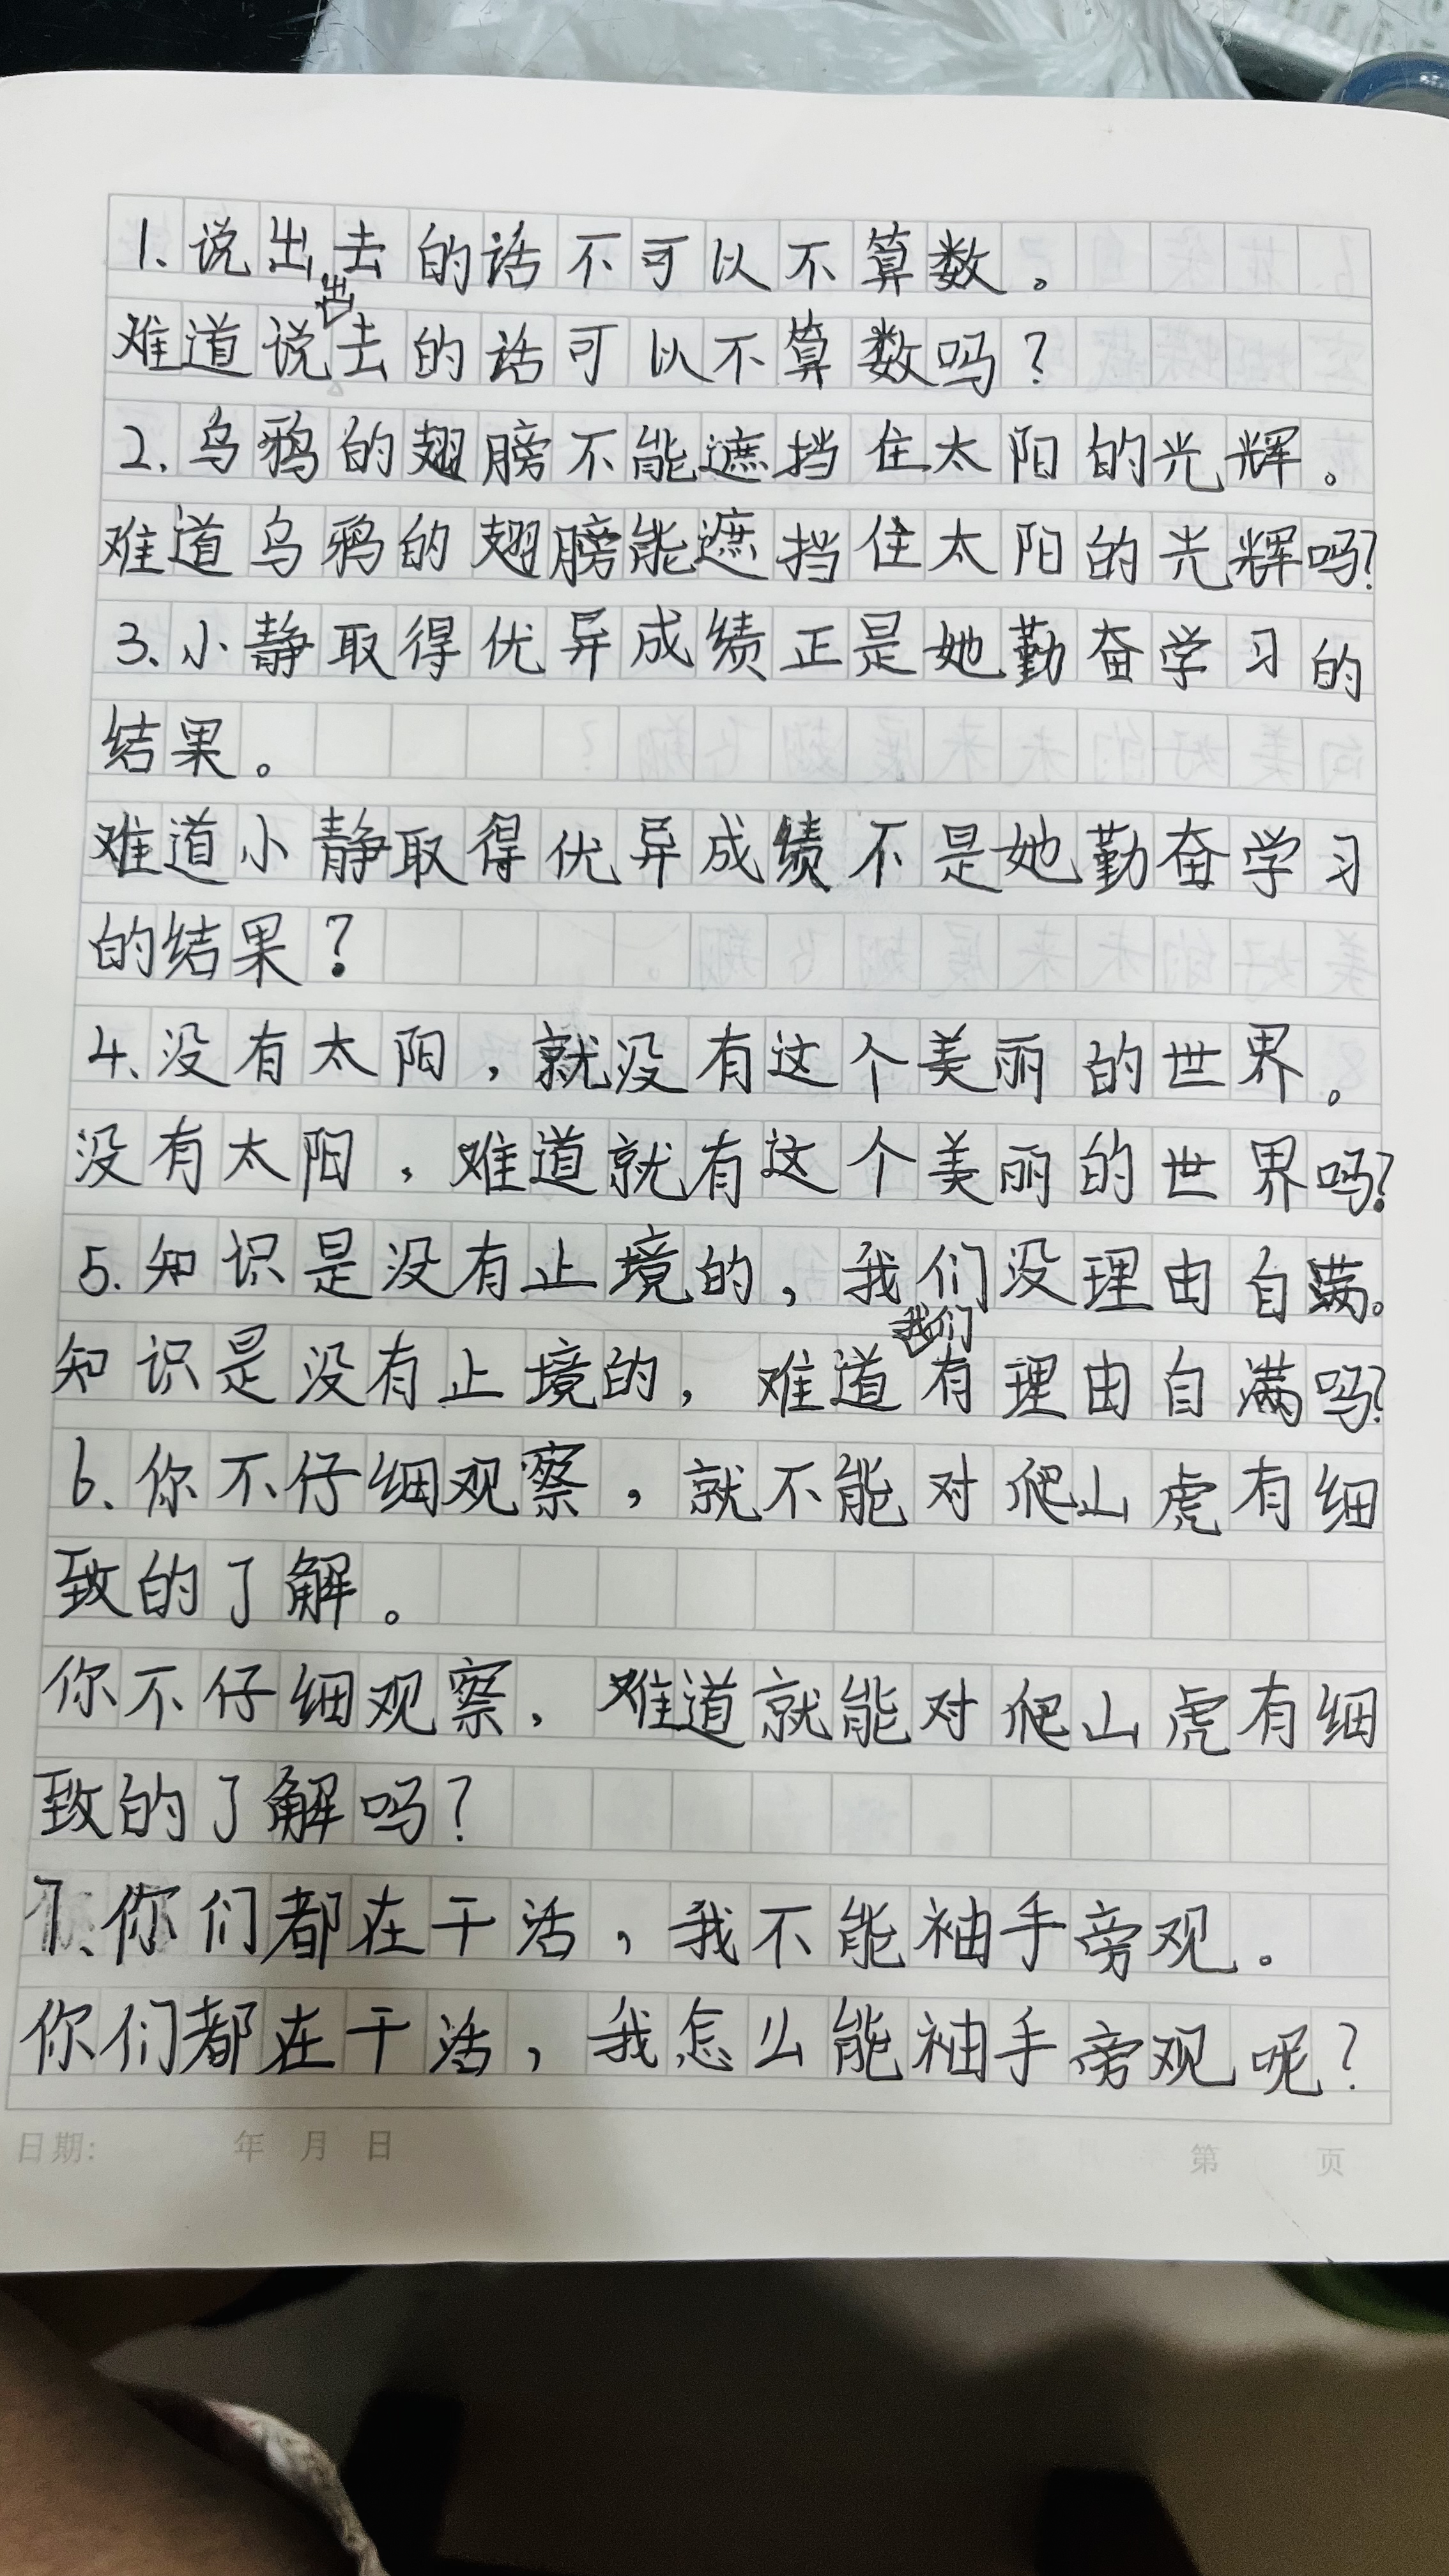 1.说出去的话不可以不算数。
难道说出去的话可以不算数吗？
2.乌鸦的翅膀不能遮挡住太阳的光辉。
难道乌鸦的翅膀能遮挡住太阳的光辉吗？
3.小静取得优异成绩正是她勤奋学习的
结果。
难道小静取得优异成绩不是她勤奋学习
的结果？
4.没有太阳，就没有这个美丽的世界。
没有太阳，难道就有这个美丽的世界吗？
5.知识是没有止境的，我们没理由自满。
知识是没有止境的，难道我们有理由自满吗？
6.你不仔细观察，就不能对爬山虎有细
致的了解。
你不仔细观察，难道就能对爬山虎有细
致的了解吗？
7.你们都在干活，我不能袖手旁观。
你们都在干活，我怎么能袖手旁观呢？
日期： 年 月 日 第 页